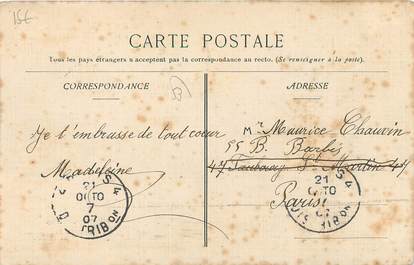 15€
CARTE POSTALE
Tous les pays étrangers n'acceptent pas la correspondance au recto. (Se renseigner à la poste).
CORRESPONDANCE
ADRESSE
Je t'embrasse de tout cœur
Madeleine
Mr Maurice Chauvin
55 B. Barbès
47 Faubourg St Martin 47
Paris
21
OCTO
7
07
DISTRIBON
21
OCTO
07
DISTRIBON